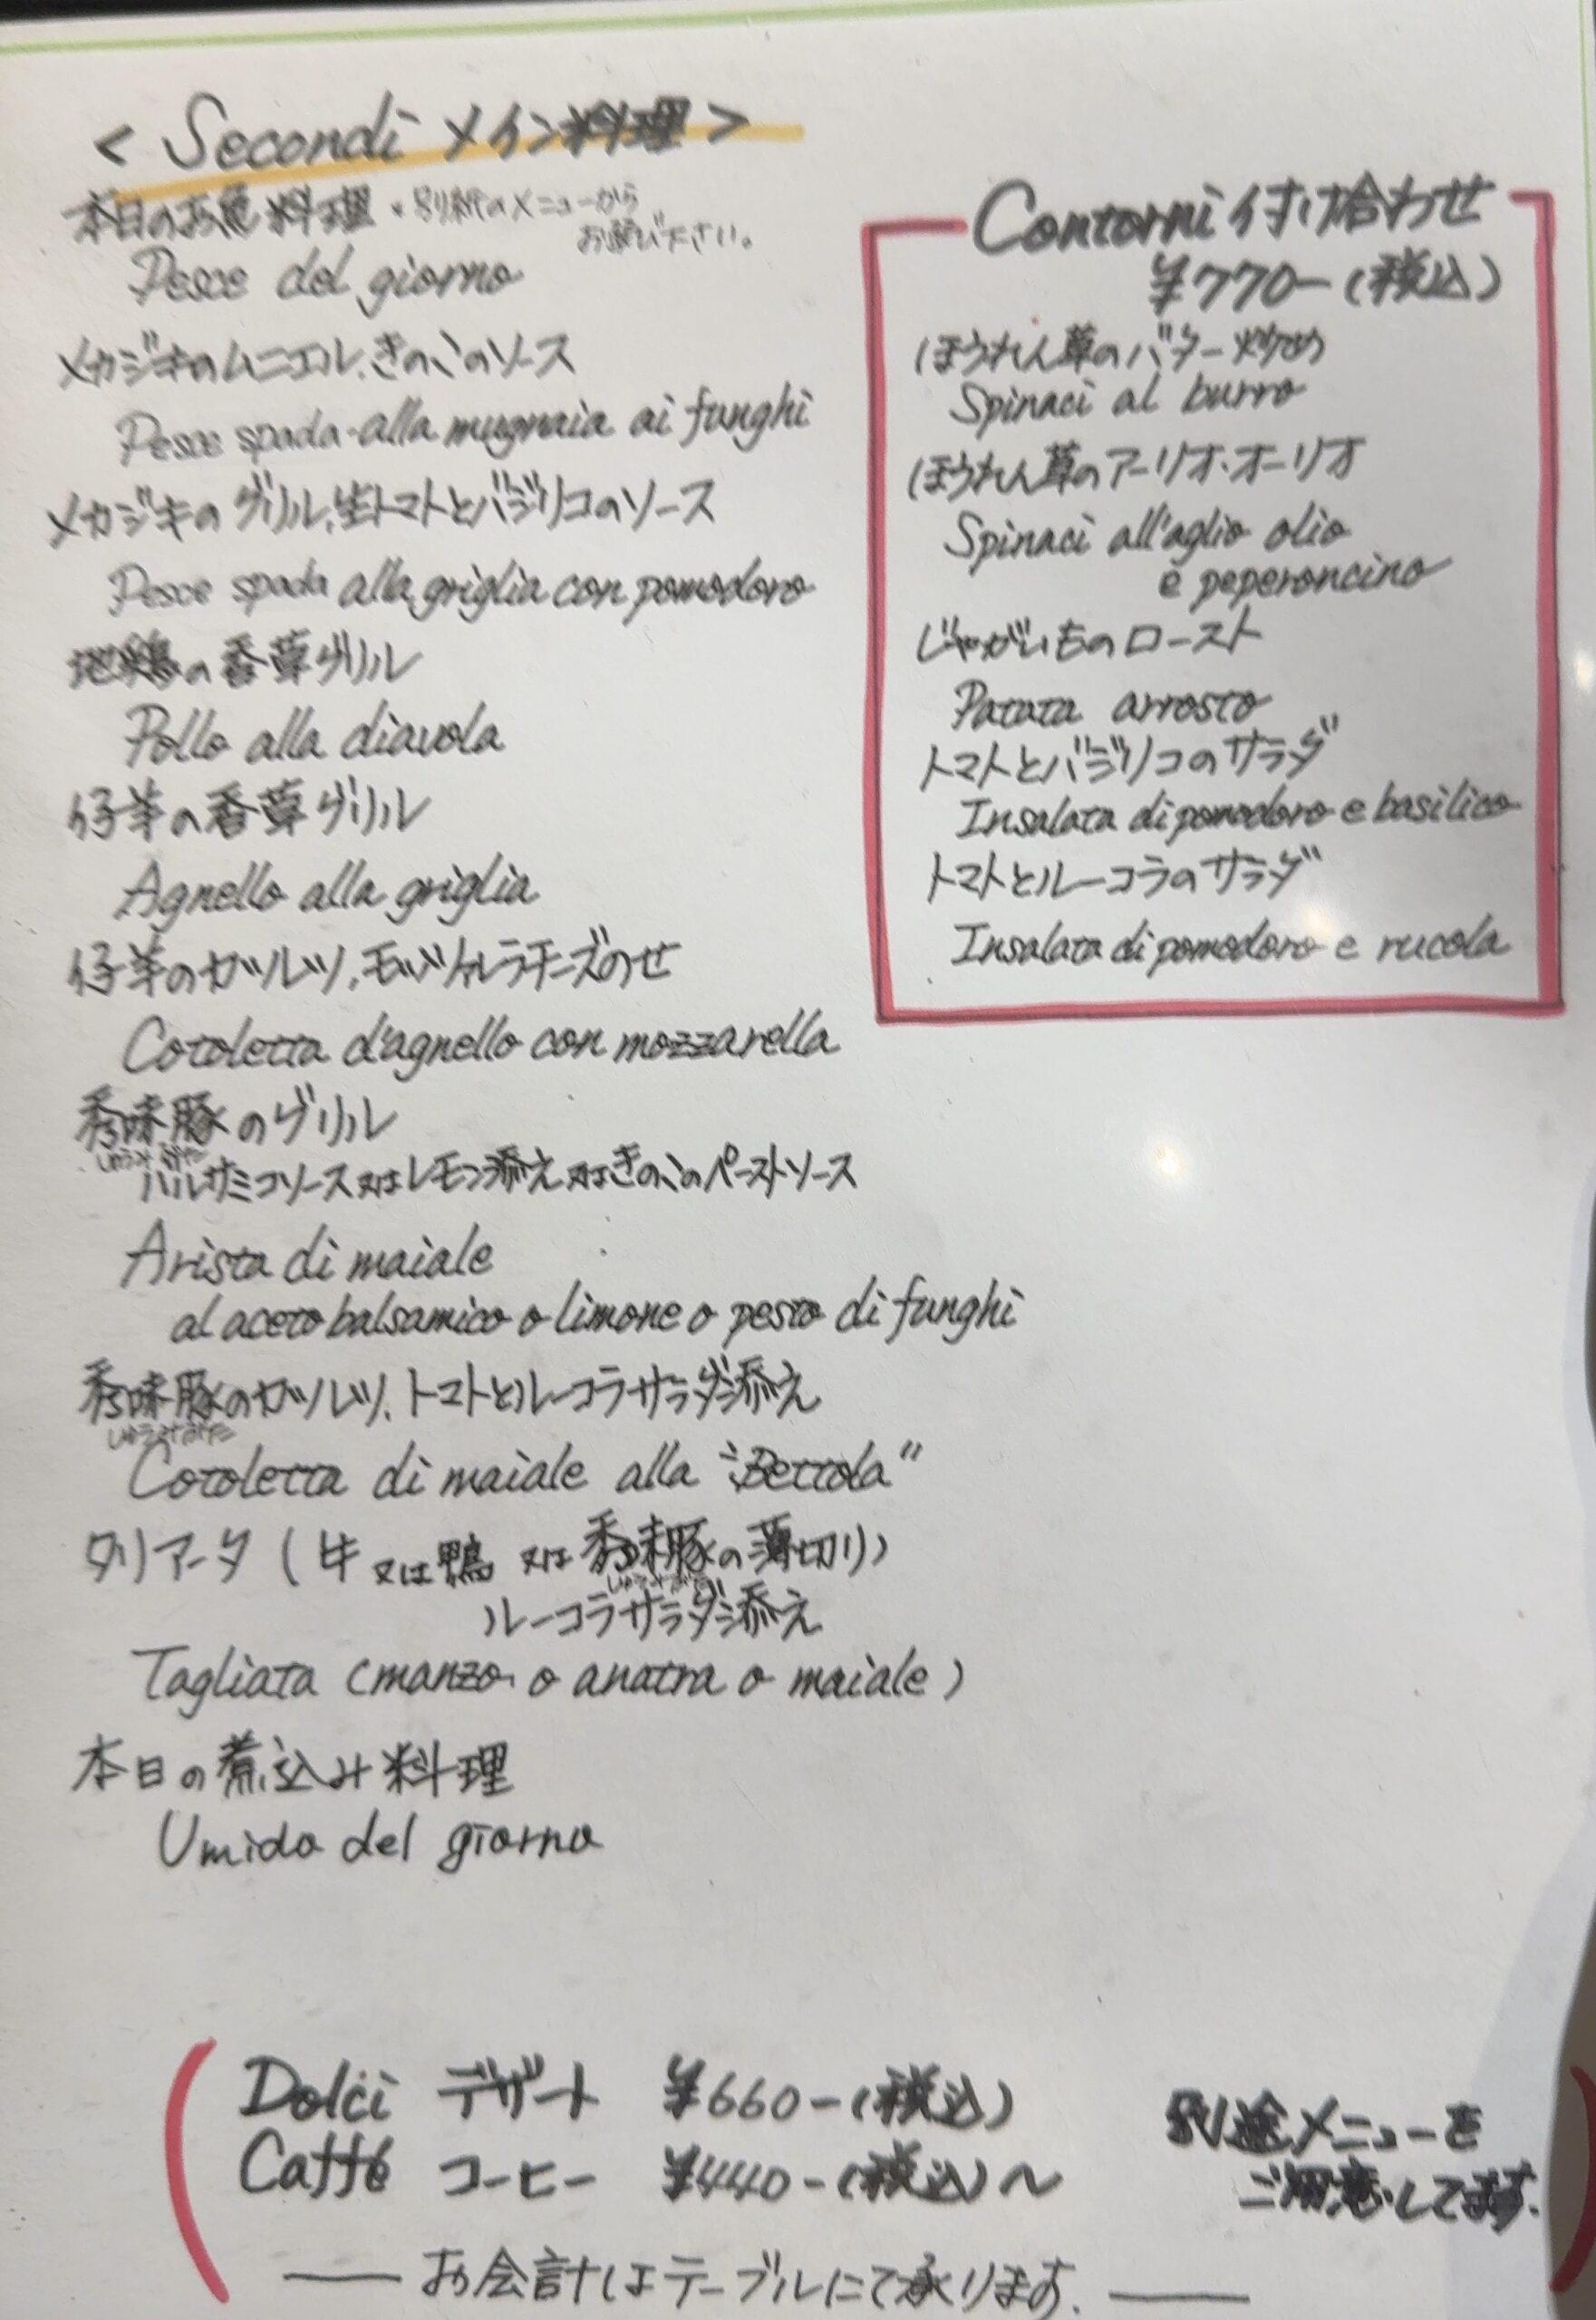 < Secondi メイン料理 >
本日のお魚料理 ・別紙のメニューから
お選び下さい。
Pesce del giorno
メカジキのムニエル、きのこのソース
Pesce spada alla mugnaia ai funghi
メカジキのグリル、生トマトとバジリコのソース
Pesce spada alla griglia con pomodoro
地鶏の香草グリル
Pollo alla diavola
仔羊の香草グリル
Agnello alla griglia
仔羊のカツレツ、モッツァレラチーズのせ
Cotoletta d'agnello con mozzarella
秀味豚のグリル
しゅうみぶた
バルサミコソース又はレモン添え又はきのこのペーストソース
Arista di maiale
al aceto balsamico o limone o pesto di funghi
秀味豚のカツレツ、トマトとルーコラサラダ添え
しゅうみぶた
Cotoletta di maiale alla "Bettola"
タリアータ (牛又は鴨 又は秀味豚の薄切り)
しゅうみぶた
ルーコラサラダ添え
Tagliata (manzo o anatra o maiale)
本日の煮込み料理
Umido del giorno
Contorni 付け合わせ
¥770-(税込)
ほうれん草のバター炒め
Spinaci al burro
ほうれん草のアーリオ・オーリオ
Spinaci all'aglio olio
e peperoncino
じゃがいものロースト
Patata arrosto
トマトとバジリコのサラダ
Insalata di pomodoro e basilico
トマトとルーコラのサラダ
Insalata di pomodoro e rucola
Dolci デザート ¥660-(税込)
Caffé コーヒー ¥440-(税込)～
別途メニューを
ご用意してます.
お会計はテーブルにて承ります.